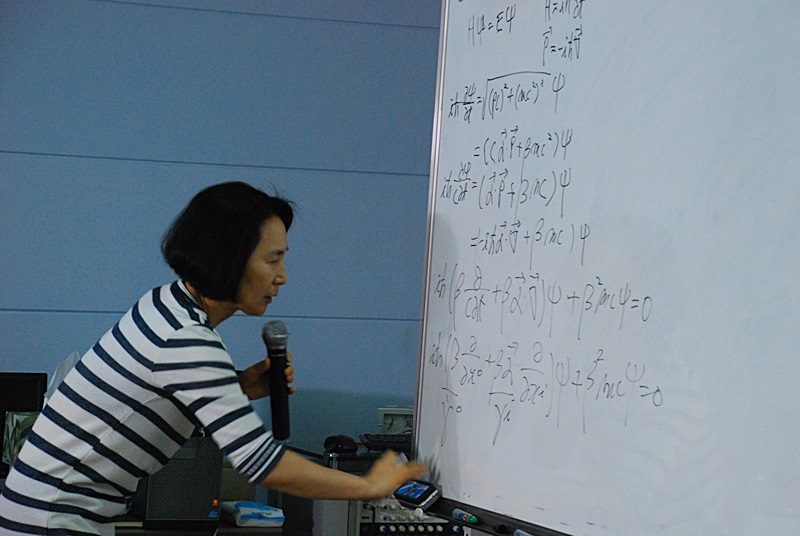 Hψ = Eψ
H = iħ ∂/∂t
p⃗ = -iħ∇⃗
iħ ∂ψ/∂t = √((pc)² + (mc²)²) ψ
= (c α⃗·p⃗ + βmc²)ψ
iħ ∂ψ/c∂t = (α⃗·p⃗ + βmc)ψ
= (-iħ α⃗·∇⃗ + βmc)ψ
iħ(β ∂/c∂t + β α⃗·∇⃗)ψ + β²mcψ = 0
iħ(β ∂/∂x⁰ + β α⃗ ∂/∂xⁱ)ψ + β²mcψ = 0
γ⁰ γⁱ